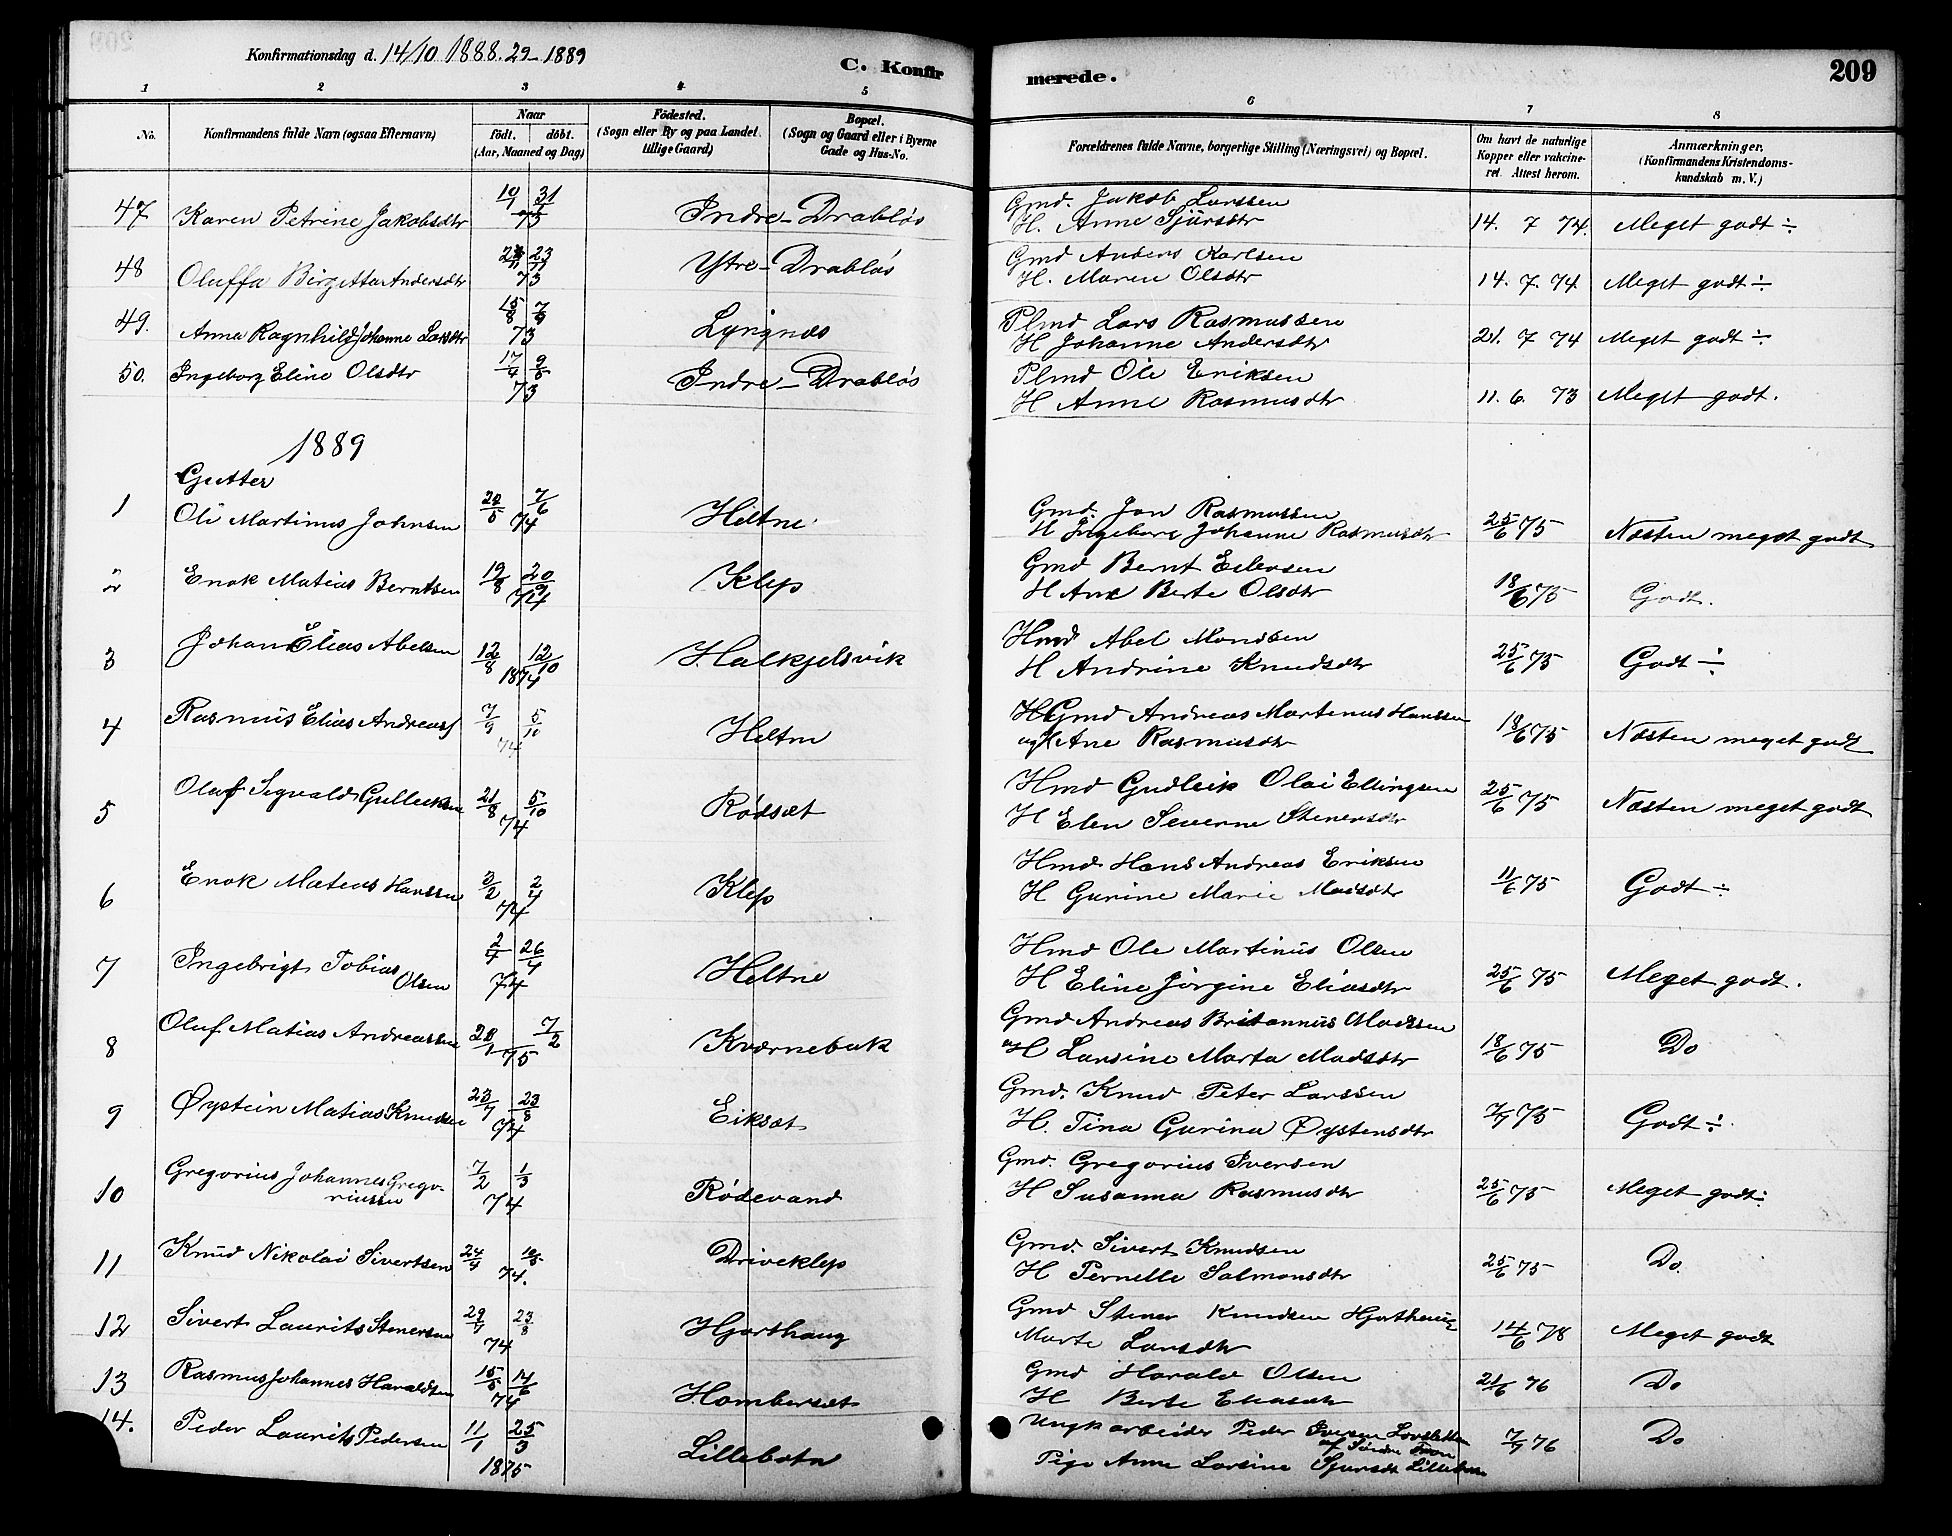 Konfirmationsdag d. 14/10 1888. 29- 1889
C. Konfir merede. 209
1 2 3 4 5 6 7 8
No. Konfirmandens fulde Navn (ogsaa Efternavn) Naar födt. döbt. (Aar, Maaned og Dag) Födested. (Sogn eller By og paa Landet tillige Gaard) Bopæl. (Sogn og Gaard eller i Byerne Gade og Hus-No. Forældrenes fulde Navne, borgerlige Stilling (Næringsvei) og Bopæl. Om havt de naturlige Kopper eller vakcineret. Attest herom. Anmærkninger. (Konfirmandens Kristendomskundskab m. V.)
47 Karen Petrine Jakobsdtr 19/1 31/1 75 Indre-Drabløs Gmd. Jakob Larssen 14. 7 74. Meget godt ÷
H. Anne Sjursdtr
48 Oluffa Birgitta Andersdtr 23/11 73 Ytre-Drabløs Gmd Anders Karlsen 14. 7. 74 Meget godt ÷
H. Maren Olsdtr
49. Anna Ragnhild Johanne Larsdtr 15/8 7/9 73 Lyngnes Plmd Lars Rasmussen 21. 7 74 Meget godt ÷
H Johanne Andersdtr
50. Ingeborg Eline Olsdtr 17/4 9/5 73 Indre-Drabløs Plmd Ole Eriksen 11. 6. 73 Meget godt.
H Anne Rasmusdtr
1889
Gutter
1 Ole Martinus Johnsen 24/5 7/6 74 Heltne Gmd. Jon Rasmussen 25/6 75 Næsten meget godt
H Ingeborg Johanne Rasmusdtr
2 Enok Matias Berntsen 19/8 20/9 74 Klep Gmd Bernt Eilersen 18/6 75 Godt.
H Ane Berte Olsdtr
3 Johan Elias Abelsen 12/8 12/10 1874 Halkjelsvik Hmd Abel Monssen 25/6 75 Godt ÷
H Andrine Knudsdtr
4 Rasmus Elias Andreass 7/9 5/10 74 Heltne Gmd Andreas Martinus Hanssen 18/6 75 Næsten meget godt
og H Ane Rasmusdtr
5 Oluf Sigvald Gulleiksen 21/8 5/10 74 Rødsæt Hmd Gudleik Olai Ellingsen 25/6 75 Næsten meget godt
H Elen Severne Stenersdtr
6 Enok Mateas Hanssen 3/2 2/4 74 Klep Hmd Hans Andreas Eriksen 11/6 75 Godt ÷
H Gurine Marie Madsdtr
7 Ingebrigt Tobias Olsen 2/4 26/4 74 Heltne Hmd Ole Martinus Olsen 25/6 75 Meget godt.
H Eline Jørgine Eliasdtr
8 Oluf Matias Andreassen 28/1 7/2 75 Kværnebak Gmd Andreas Britannus Madssen 18/6 75 Do
H Larsine Marta Madsdtr
9 Øystein Matias Knudsen 23/7 23/8 74 Eiksæt Gmd. Knud Peter Larssen 7/7 75 Godt ÷
H. Tina Gurina Øystensdtr
10 Gregorius Johannes Gregoriussen 7/2 1/3 74 Rødevand Gmd. Gregorius Iversen 25/6 75 Meget godt:
H Susanna Rasmusdtr
11 Knud Nikolai Sivertsen 24/4 74. Driveklep Gmd. Sivert Knudsen 25/6 75 Do.
H Pernelle Salmonsdtr
12 Sivert Laurits Stenersen 29/7 23/8 74 Hjorthaug Gmd Stener Knudsen Hjorthaug 14/6 78 Meget godt
Marte Larsdtr
13 Rasmus Johannes Haraldsen 15/5 14/6 74 Hambersæt Gmd Harald Olsen 21/6 76 Do
H Berte Eliasdtr
14. Peder Laurits Pedersen 11/1 25/3 1875 Lillebotn Ungk arbeider Peder Iversen 7/7 76 Do
af Søndre
Pige Anne Larsine Sjursdt